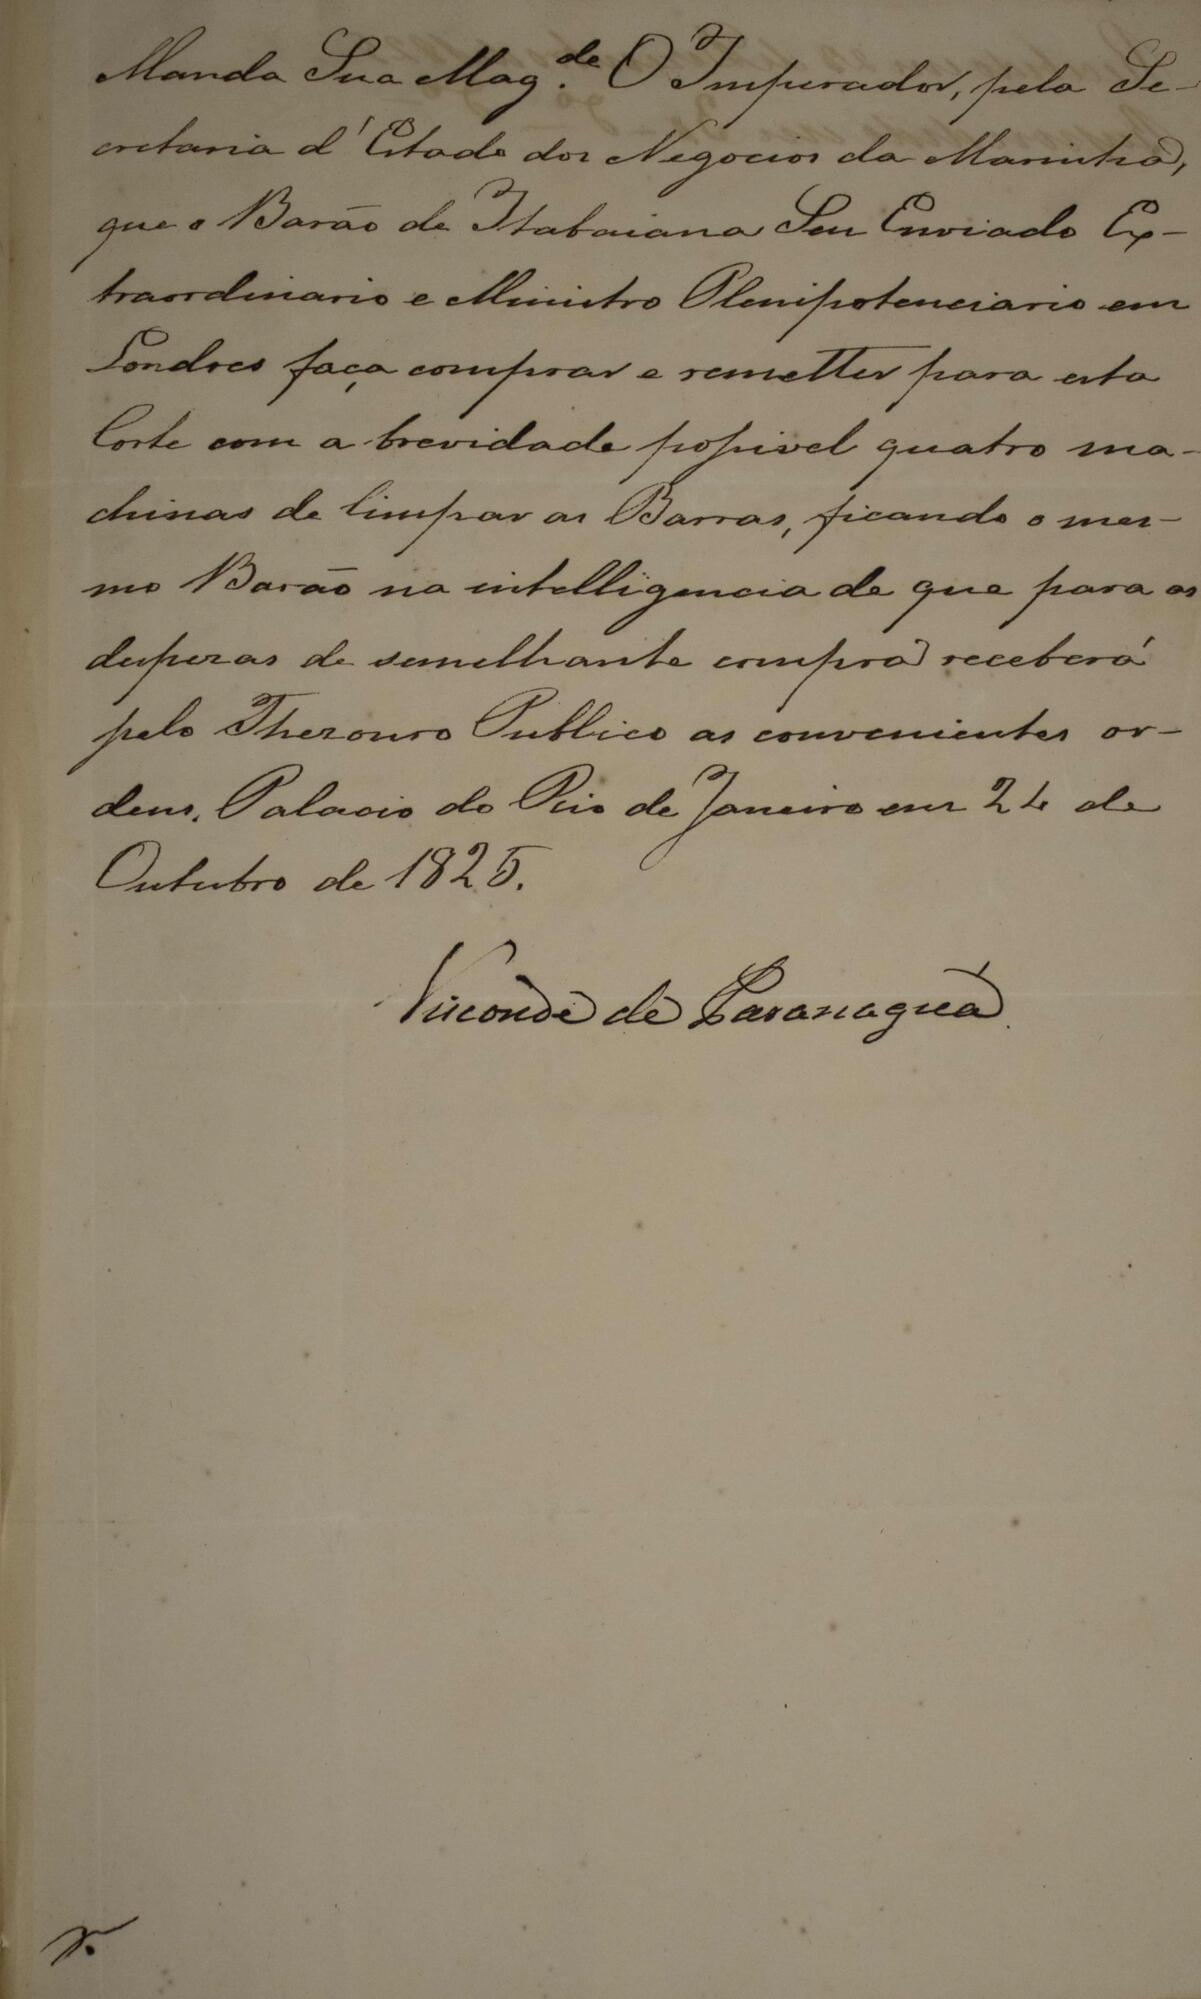 Manda Sua Mag.de O Imperador, pela Se-
cretaria d'Estado dos Negocios da Marinha,
que o Barão de Itabaiana Seu Enviado Ex-
traordinario e Ministro Plenipotenciario em
Londres faça comprar e remetter para esta
Corte com a brevidade possivel quatro ma-
chinas de limpar as Barras, ficando o mes-
mo Barão na intelligencia de que para as
despezas de semelhante compra receberá
pelo Thezouro Publico as convenientes or-
dens. Palacio do Rio de Janeiro em 24 de
Outubro de 1825.
Visconde de Paranaguá